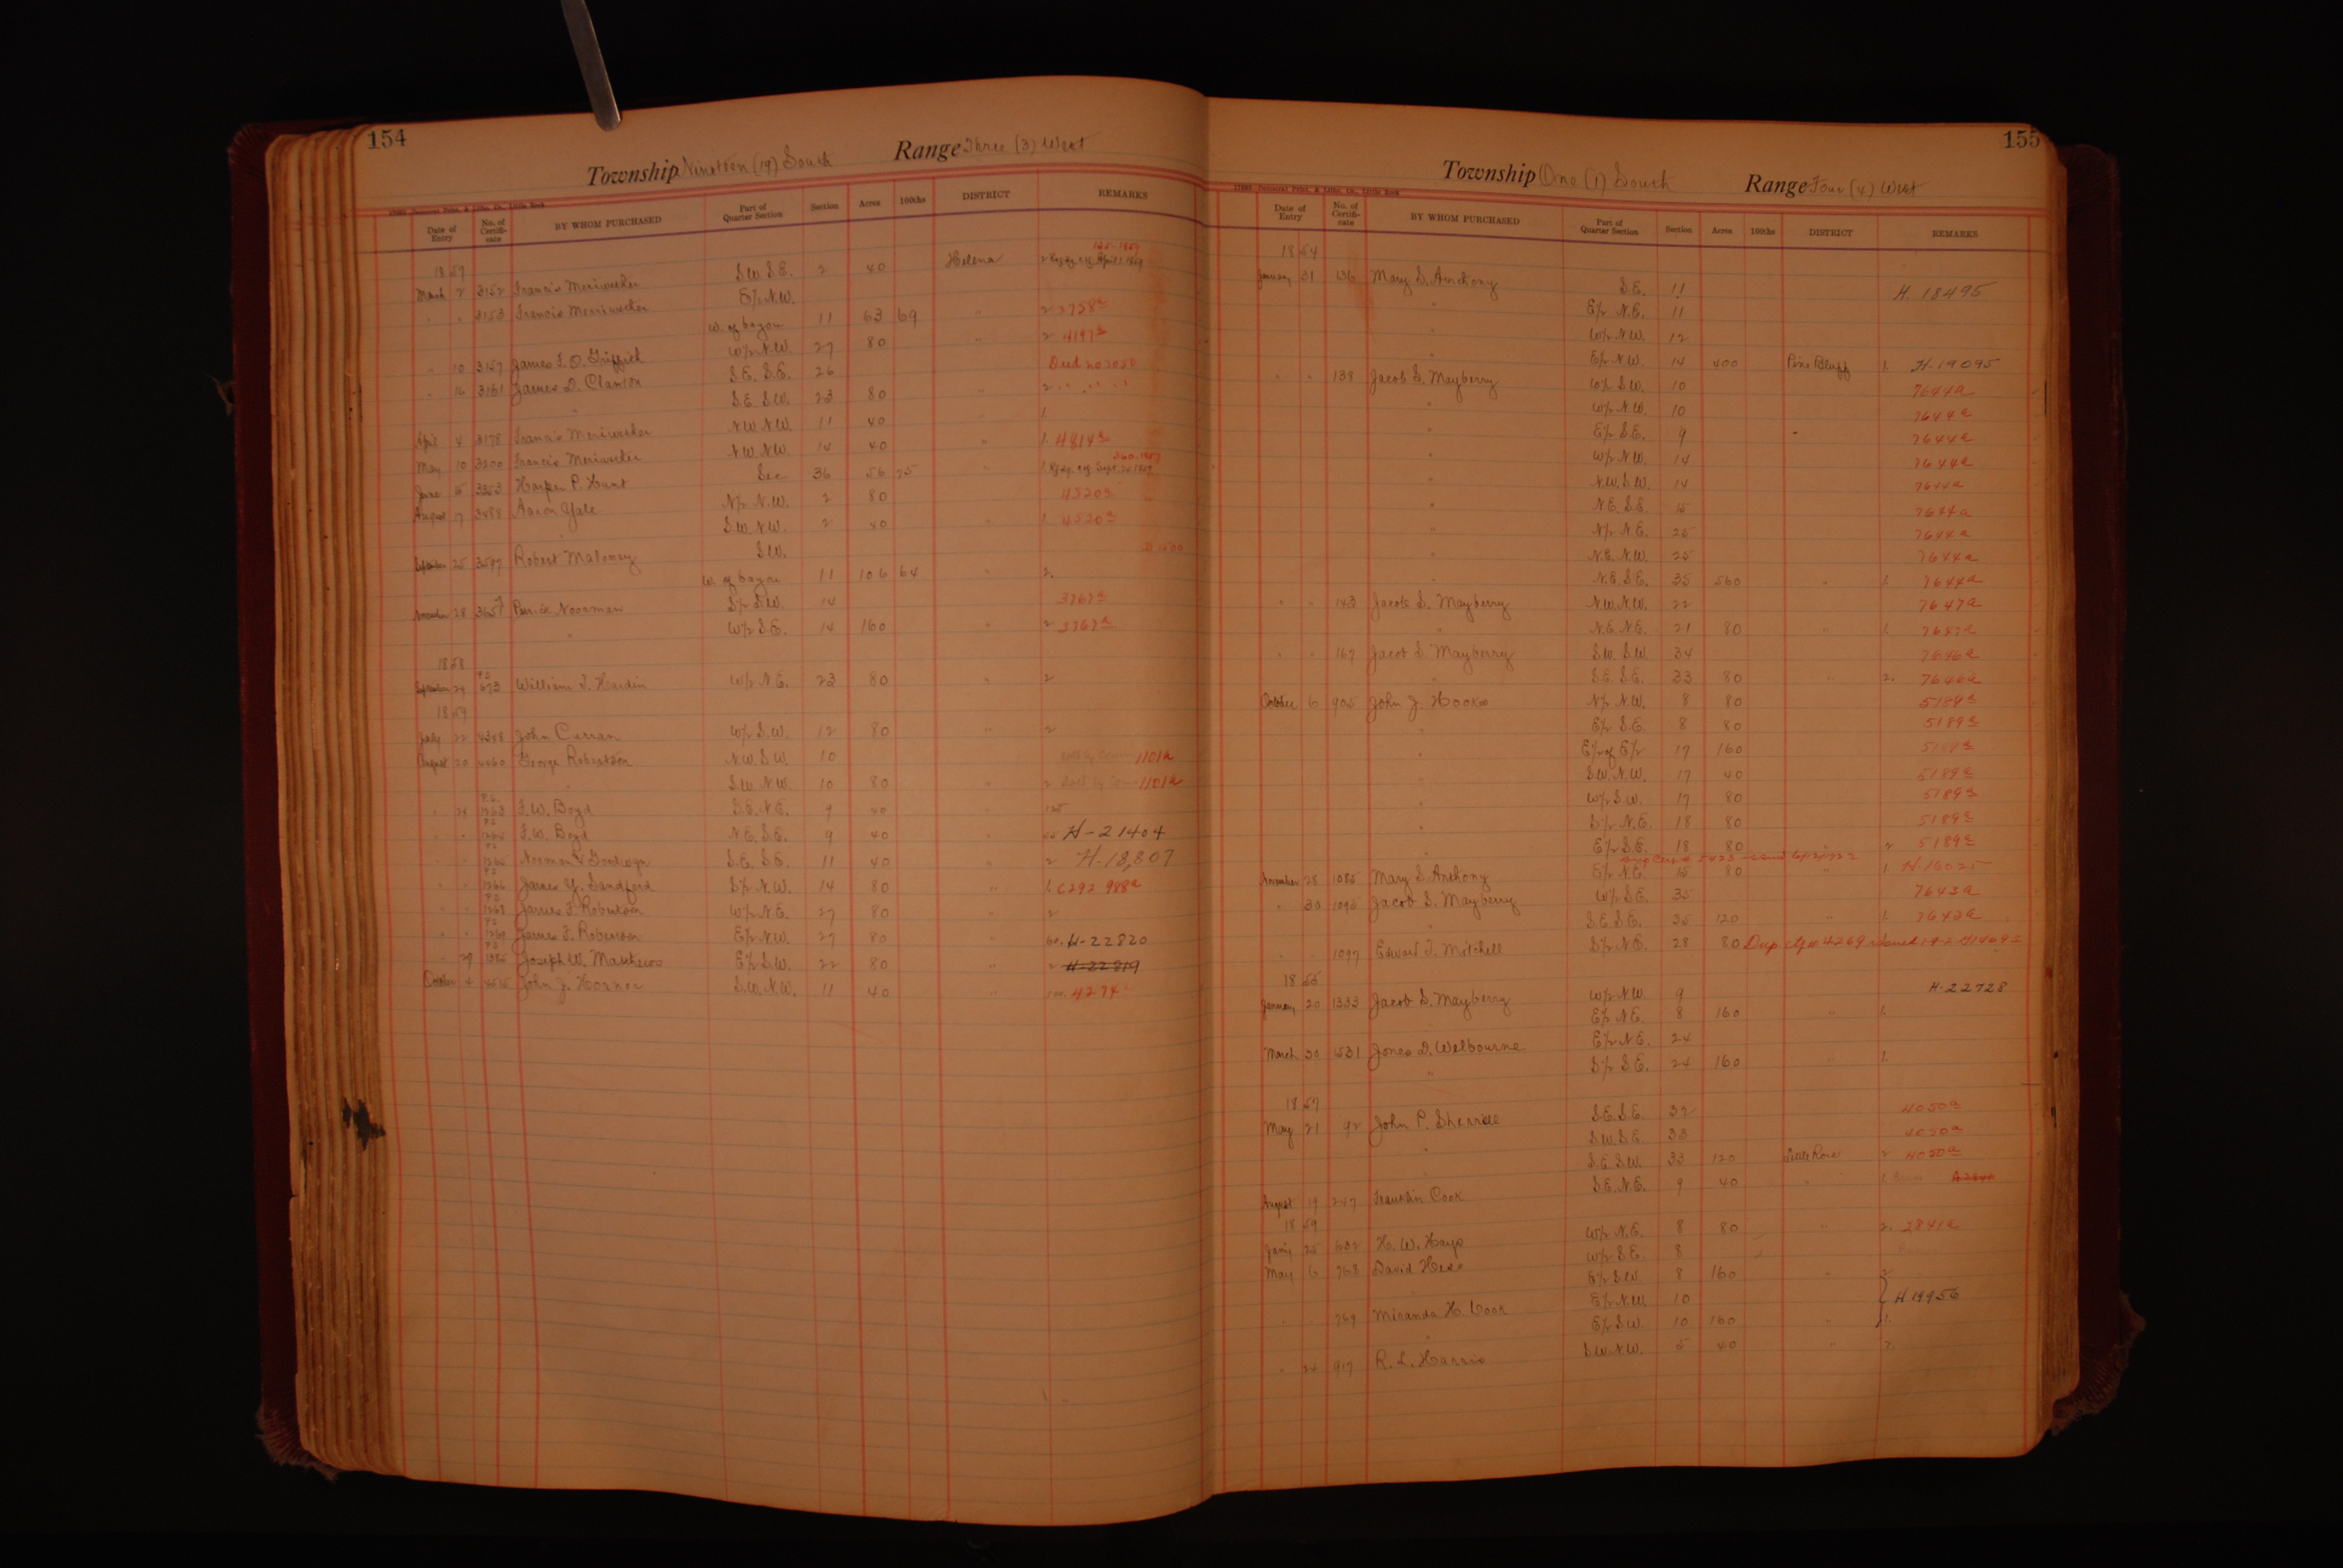 154
Township Nineteen (19) South Range Three (3) West
Date of Entry No. of Certificate BY WHOM PURCHASED Part of Quarter Section Section Acres 100ths DISTRICT REMARKS
1857
March 2 3152 Francis Meriwether S.W. S.E. 2 40 Helena 2
" " 3153 Francis Merriwether E/2 N.W.
W. of bayou 11 63 69 " 2 3758
W/2 N.W. 27 80 " 2 4197
" 10 3157 James F. O. Griffith S.E. S.E. 26
" 16 3161 James D. Clanton S.E. S.W. 23 80 " 2
N.W. N.W. 11 40 " 1.
April 4 3178 Francis Meriwether N.W. N.W. 14 40 " 1. 4814
May 10 3200 Francis Meriwether Sec 36 56 25 "
June 5 3353 Harper P. Hunt N/2 N.W. 2 80 4520
August 7 3488 Aaron Yale S.W. N.W. 2 40 " 1. 4520
September 25 3597 Robert Maloney S.W.
W. of bayou 11 106 64 " 2.
November 28 3657 Noorman S/2 S.W. 14 3767
" W/2 S.E. 14 160 " 2 3767
1858
September 29 673 William T. Hardin W/2 N.E. 23 80 " 2
1859
July 22 4348 John Curran W/2 S.W. 12 80 " 2
August 20 4460 George Robertson N.W. S.W. 10 1101a
" S.W. N.W. 10 80 " 2 1101a
" 24 1263 F. W. Boyd S.E. N.E. 9 40 "
" " F. W. Boyd N.E. S.E. 9 40 " H-21404
" " 1265 Norman S.E. S.E. 11 40 " 2 H-18,807
" " 1266 James Y. Sandford S/2 N.W. 14 80 " 1. C292 988a
" " 1268 James F. Robertson W/2 N.E. 27 80 " 2
" " 1269 James F. Robertson E/2 N.W. 27 80 " H-22820
" 29 Joseph W. Matthews E/2 S.W. 22 80 " 2 H-22819
October 4 John J. Hornor S.W. N.W. 11 40 " 4274
155
Township One (1) South Range Four (4) West
Date of Entry No. of Certificate BY WHOM PURCHASED Part of Quarter Section Section Acres 100ths DISTRICT REMARKS
1854
January 31 136 Mary S. Anthony S.E. 11 H. 18495
" E/2 N.E. 11
" W/2 N.W. 12
" E/2 N.W. 14 400 Pine Bluff 1. H-19095
" " 138 Jacob S. Mayberry W/2 S.W. 10 7644a
" W/2 N.W. 10 7644a
" E/2 S.E. 9 7644a
" W/2 N.W. 14 7644a
" N.W. S.W. 14 7644a
" N.E. S.E. 15 7644a
" N/2 N.E. 25 7644a
" N.E. N.W. 25 7644a
" N.E. S.E. 35 560 " 1. 7644a
" " 143 Jacob S. Mayberry N.W. N.W. 22 7647a
" N.E. N.E. 21 80 " 1. 7647a
" " 167 Jacob S. Mayberry S.W. S.W. 34 7646a
" S.E. S.E. 33 80 " 2. 7646a
October 6 905 John J. Hooks N/2 N.W. 8 80 5189a
" E/2 S.E. 8 80 5189a
" E/2 of E/2 17 160 5189a
" S.W. N.W. 17 40 5189a
" W/2 S.W. 17 80 5189a
" S/2 N.E. 18 80 5189a
" E/2 S.E. 18 80 2 5189a
November 28 1085 Mary S. Anthony E/2 N.E. 15 80 " 1. H-16025
" 30 1095 Jacob S. Mayberry W/2 S.E. 35 7643a
S.E. S.E. 35 120 " 1. 7643a
" " 1097 Edward T. Mitchell S/2 N.E. 28 80 Dup. ctf. # 4269 issued
1855
H-22728
January 20 1333 Jacob S. Mayberry W/2 N.W. 9
E/2 N.E. 8 160 " 1.
March 30 1531 Jones D. Welbourne E/2 N.E. 24
" S/2 S.E. 24 160 " 1.
1857
May 21 92 John P. Sherrill S.E. S.E. 32 4050a
" S.W. S.E. 33 4050a
" S.E. S.W. 33 120 Little Rock 2 4050a
August 19 247 Franklin Cook S.E. N.E. 9 40 " 1.
1859
Jan'y 25 632 H. W. Hays W/2 N.E. 8 80 " 2. 2841a
May 6 768 David Hess W/2 S.E. 8
E/2 S.W. 8 160 " 2
" " 769 Miranda H. Cook E/2 N.W. 10 H 19956
" E/2 S.W. 10 160 " 1.
" 24 917 R. L. Harris S.W. N.W. 5 40 " 2.